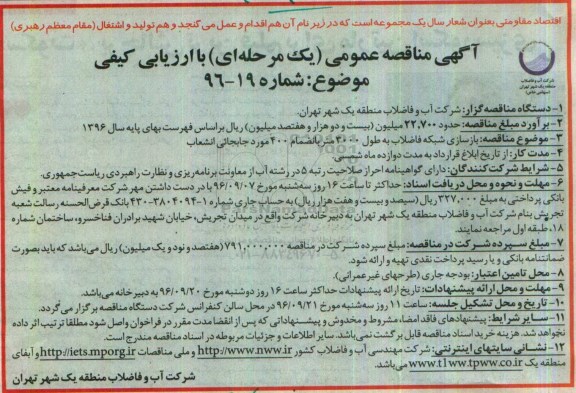 اقتصاد مقاومتی بعنوان شعار سال یک مجموعه است که در زیر نام آن هم اقدام و عمل می گنجد و هم تولید و اشتغال (مقام معظم رهبری)
آگهی مناقصه عمومی (یک مرحله‌ای) با ارزیابی کیفی
موضوع: شماره ۱۹-۹۶
شرکت آب و فاضلاب
منطقه یک شهر تهران
(سهامی خاص)
۱- دستگاه مناقصه گزار: شرکت آب و فاضلاب منطقه یک شهر تهران.
۲- برآورد مبلغ مناقصه: حدود ۲۲,۷۰۰ میلیون (بیست و دو هزار و هفتصد میلیون) ریال براساس فهرست بهای پایه سال ۱۳۹۶
۳- موضوع مناقصه: بازسازی شبکه فاضلاب به طول ۳۰۰۰ متر بالضمام ۴۰۰ مورد جابجائی انشعاب
۴- مدت کار: از تاریخ ابلاغ قرارداد به مدت دوازده ماه شمسی
۵- شرایط شرکت کنندگان: دارای گواهینامه احراز صلاحیت رتبه ۵ در رشته آب از معاونت برنامه‌ریزی و نظارت راهبردی ریاست جمهوری.
۶- مهلت و نحوه و محل دریافت اسناد: حداکثر تا ساعت ۱۶ روز سه‌شنبه مورخ ۹۶/۰۹/۰۷ با در دست داشتن مهر شرکت معرفینامه معتبر و فیش
بانکی پرداختی به مبلغ ۳۲۷,۰۰۰ ریال (سیصد و بیست و هفت هزار ریال) به حساب جاری شماره ۱-۳۸۰۴۰۹۴-۴۳۰ بانک قرض‌الحسنه رسالت شعبه
تجریش بنام شرکت آب و فاضلاب منطقه یک شهر تهران به دبیرخانه شرکت واقع در میدان تجریش، خیابان شهید برادران فناخسرو، ساختمان شماره
۱۸، طبقه اول مراجعه نمایند.
۷- مبلغ سپرده شرکت در مناقصه: مبلغ سپرده شرکت در مناقصه ۷۹۱,۰۰۰,۰۰۰ (هفتصد و نود و یک میلیون) ریال می‌باشد که باید بصورت
ضمانتنامه بانکی و یا رسید پرداخت نقدی تهیه و ارائه شود.
۸- محل تامین اعتبار: بودجه جاری (طرحهای غیرعمرانی).
۹- مهلت و محل ارائه پیشنهادات: تاریخ ارائه پیشنهادات حداکثر ساعت ۱۶ روز دوشنبه مورخ ۹۶/۰۹/۲۰ به دبیرخانه می‌باشد.
۱۰- تاریخ و محل تشکیل جلسه: ساعت ۱۱ روز سه‌شنبه مورخ ۹۶/۰۹/۲۱ در محل سالن کنفرانس شرکت دستگاه مناقصه برگزار می‌گردد.
۱۱- سایر شرایط: پیشنهادهای فاقد امضاء، مشروط و مخدوش و پیشنهاداتی که پس از انقضا مدت مقرر در فراخوان واصل شود مطلقا ترتیب اثر داده
نخواهد شد. هزینه خرید اسناد مناقصه قابل برگشت نمی‌باشد. سایر اطلاعات و جزئیات مربوطه در اسناد مناقصه مندرج است.
۱۲- نشانی سایتهای اینترنتی: شرکت مهندسی آب و فاضلاب کشور http://www.nww.ir و ملی مناقصات http://iets.mporg.ir و آبفای
منطقه یک www.t1ww.tpww.co.ir می‌باشد.
شرکت آب و فاضلاب منطقه یک شهر تهران